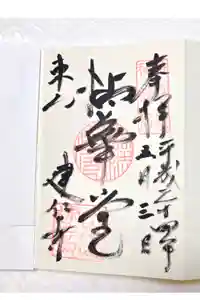 奉拝
平成二十四年
五月三日
拈華堂
東山
建仁寺